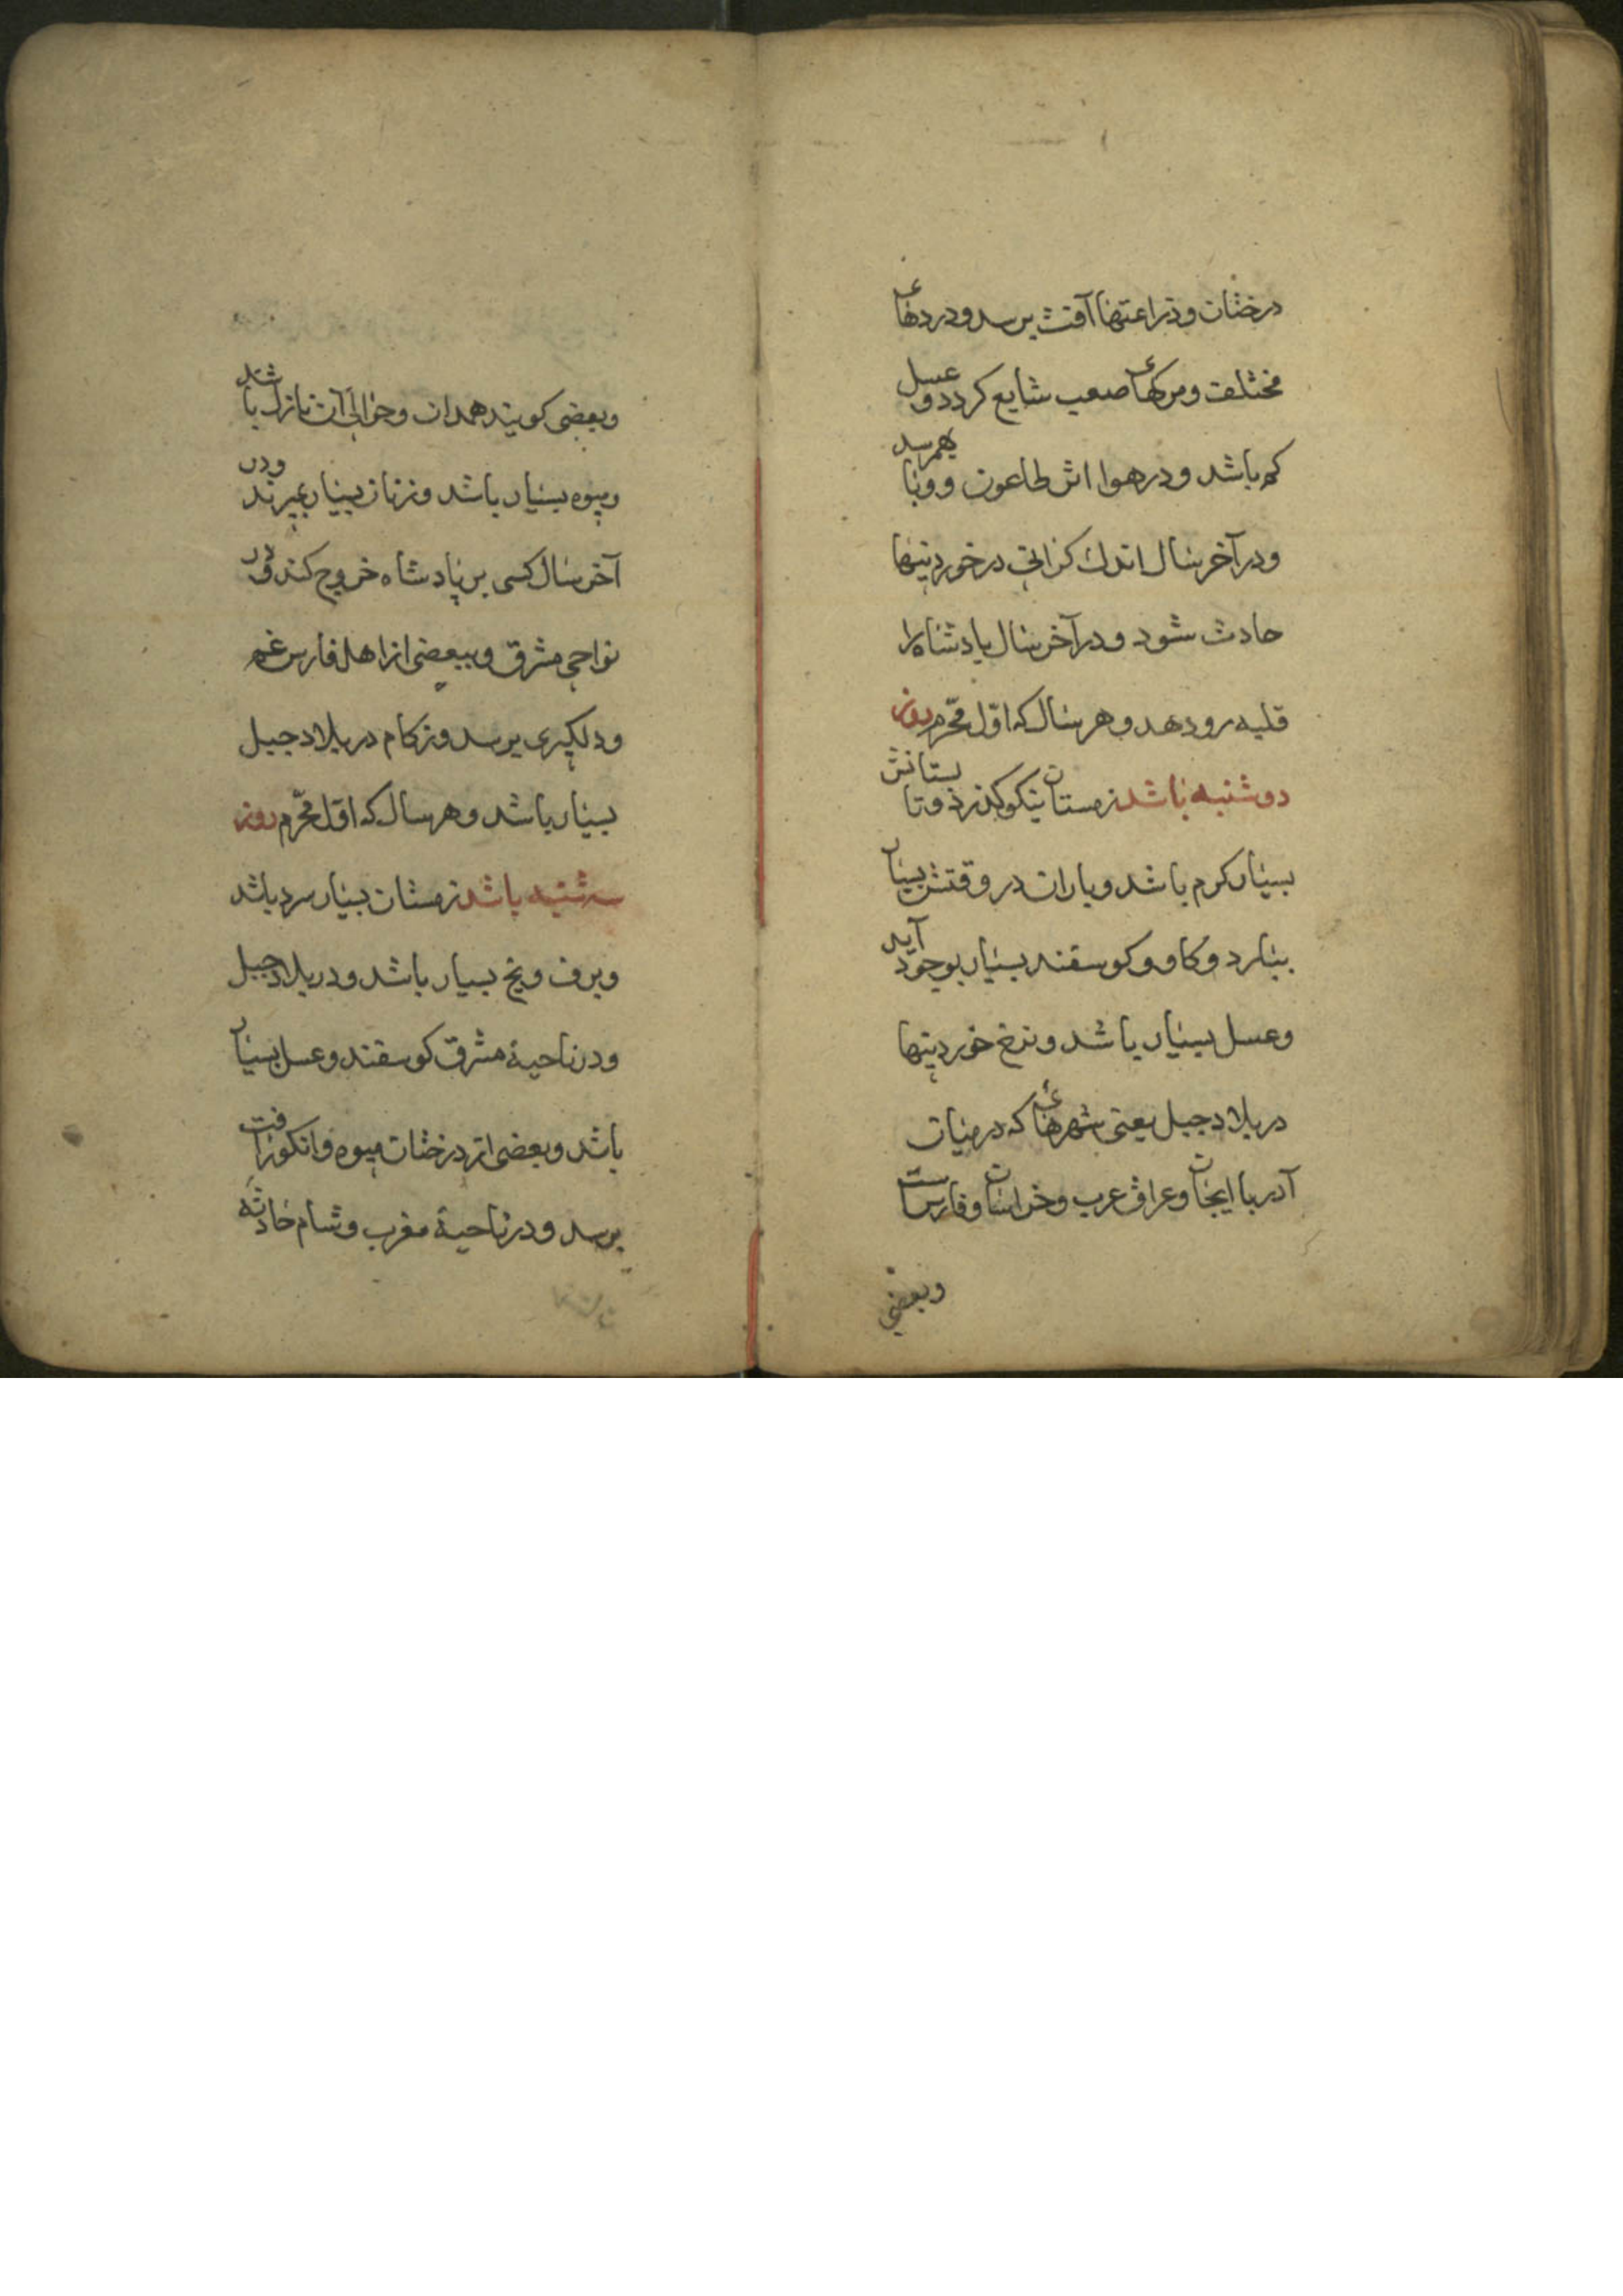 درختان و زراعتها آفت برسد و دردهای
مختلف و مرکهای صعب شایع کردد و عسل
کم باشد و در هوا اثر طاعون و وبا بهمرسد
و در آخر سال اندک کرانی در خوردنیها
حادث شود و در آخر سال پادشاه را
غلبه رو دهد و هر سال که اوّل محرّم روز
دوشنبه باشد زمستان نیکو کذرد و تابستانش
بسیار کرم باشد و باران در وقتش بسیار
ببارد و کاو و کوسفند بسیار بوجود آید
و عسل بسیار باشد و نرخ خوردنیها
در بلاد جبل یعنی شهرهائی که در میان
آدربا ایجان و عراق عرب و خراسان و فارس است
و بعضی
و بعضی کویند همدان و حوالی آن نازل باشد
و میوه بسیار باشد و زنان بسیار بمیرند و در
آخر سال کسی بر پادشاه خروج کند و در
نواحی مشرق و ببعضی از اهل فارس غم
و دلکیری برسد و زکام در بلاد جبل
بسیار باشد و هر سال که اوّل محرّم روز
سه شنبه باشد زمستان بسیار سرد باشد
و برف و یخ بسیار باشد و در بلاد جبل
و در ناحیهٔ مشرق کوسفند و عسل بسیار
باشد و بعضی از درختان میوه و انکور را آفت
برسد و در ناحیهٔ مغرب و شام حادثه